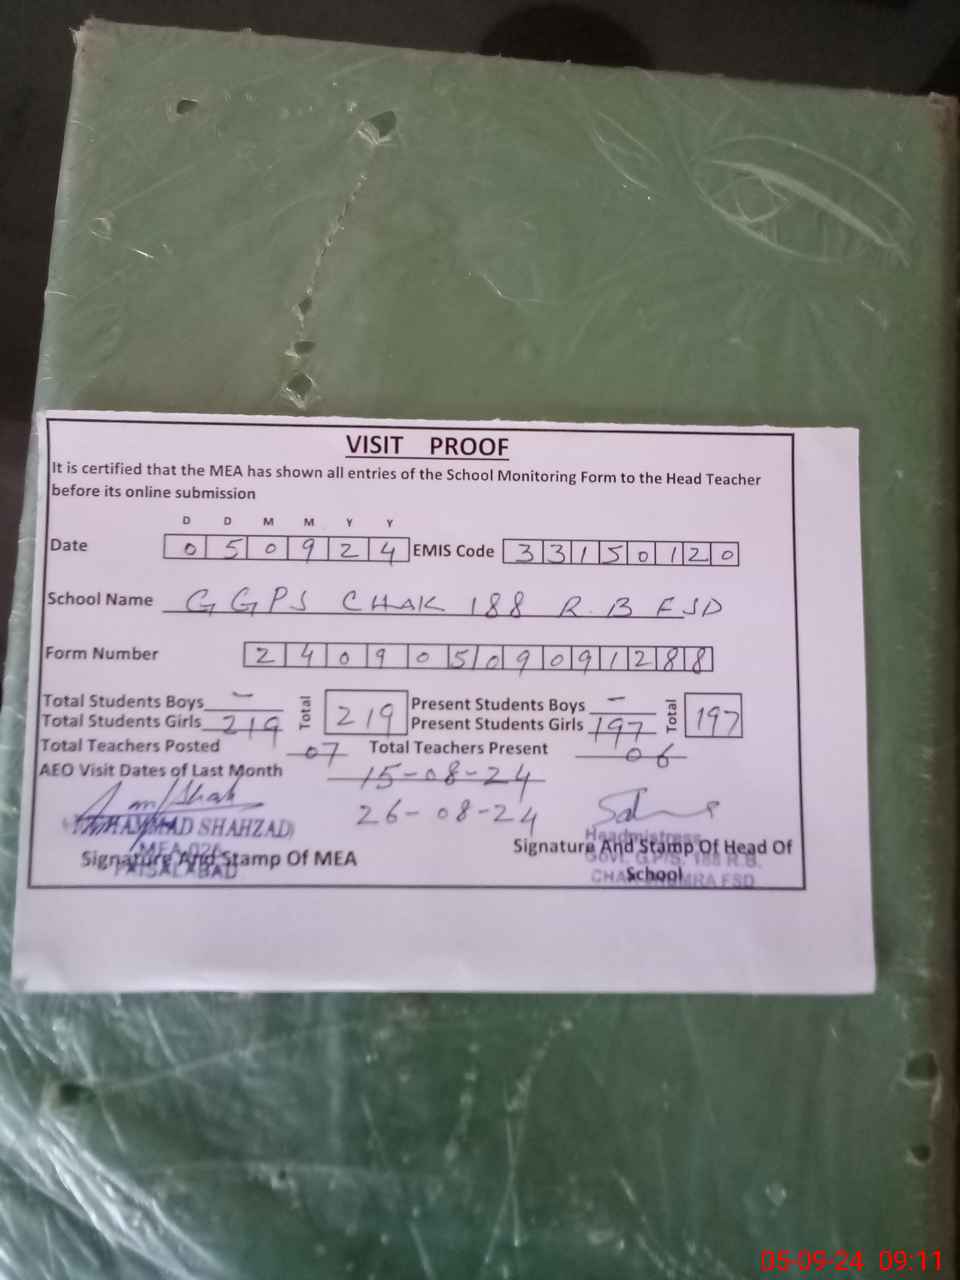 VISIT PROOF
It is certified that the MEA has shown all entries of the School Monitoring Form to the Head Teacher
before its online submission
D D M M Y Y
Date 0 5 0 9 2 4 EMIS Code 3 3 1 5 0 1 2 0
School Name GGPS CHAK 188 R.B FSD
Form Number 2 4 0 9 0 5 0 9 0 9 1 2 8 8
Total Students Boys - Total 219 Present Students Boys - Total 197
Total Students Girls 219 Present Students Girls 197
Total Teachers Posted 07 Total Teachers Present 06
AEO Visit Dates of Last Month 15-08-24
26-08-24
MUHAMMAD SHAHZAD
MEA-026
FAISALABAD
Signature And Stamp Of MEA
Signature And Stamp Of Head Of
School
Headmistress
Govt. G.P/S. 188 R.B.
FSD
05-09-24 09:11